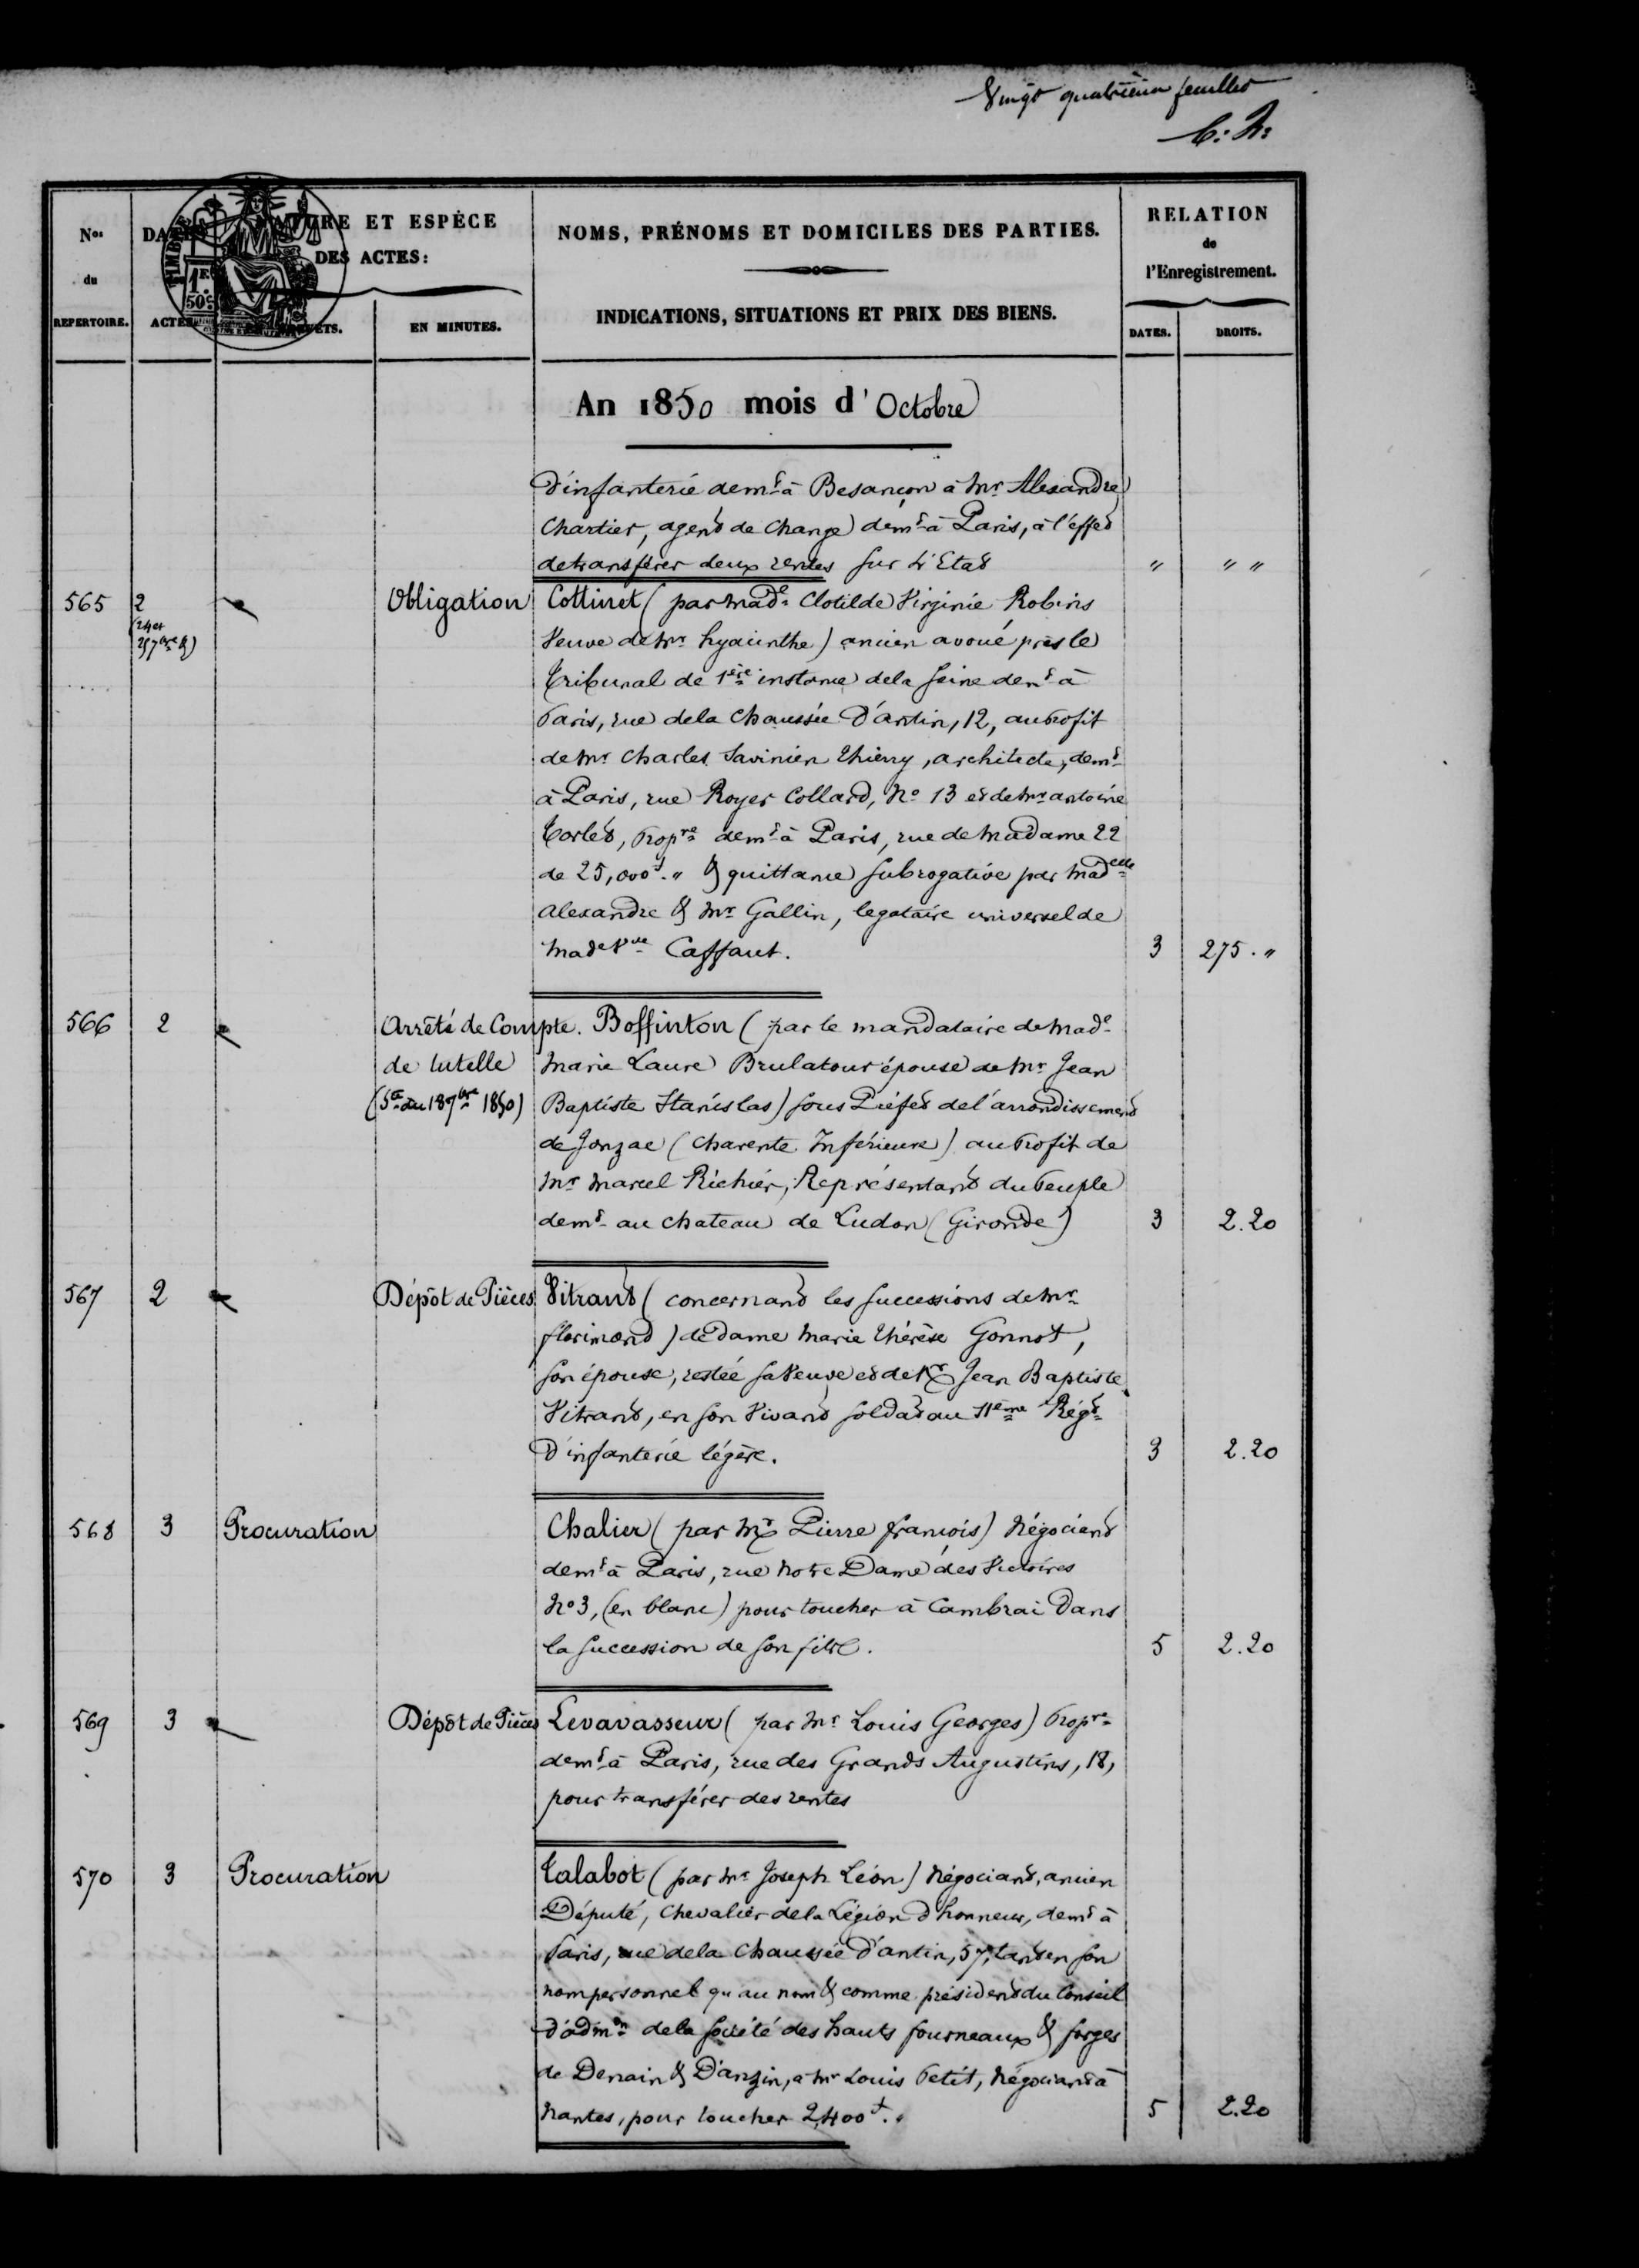 Vingt quatrième feuillet
C. N.
Nos du REPERTOIRE.
DATES ACTES
NATURE ET ESPÈCE DES ACTES:
EN MINUTES.
NOMS, PRÉNOMS ET DOMICILES DES PARTIES.
INDICATIONS, SITUATIONS ET PRIX DES BIENS.
RELATION
de
l'Enregistrement.
DATES. DROITS.
TIMBRE
1F.
50C.
An 1850 mois d'Octobre
d'infanterie demt à Besançon à Mr Alexandre
Chartier, agent de Change demt à Paris, à l'effet
de transférer deux rentes sur l'Etat " " "
565 2 Obligation Cottinet (par Made Clotilde Virginie Robins
24 et
25 7bre
Veuve de Mr hyacinthe) ancien avoué près le
Tribunal de 1ère instance de la Seine demt à
Paris, rue de la Chaussée d'antin, 12, au Profit
de Mr Charles Savinien Thierry, architecte, demt
à Paris, rue Royer Collard, No 13 et de Mr antoine
Torlet, Propre demt à Paris, rue de Madame 22
de 25,000f. " & quittance subrogative par Madelle
Alexandre & Mr Gallin, legataire universel de
Made Vve Caffaut. 3 275. "
566 2 Arrêté de Compte. Boffinton (par le mandataire de Made
de tutelle Marie Laure Brulatour épouse de Mr Jean
(Sa du 18 7bre 1850) Baptiste Stanislas) sous Préfet de l'arrondissement
de Jonzac (Charente Inférieure) au Profit de
Mr Marcel Richier, Représentant du Peuple
demt au chateau de Ludon (Gironde) 3 2.20
567 2 Dépôt de Pièces Vitrant (concernant les successions de Mr
florimond) de dame Marie Thérèse Gonnot,
son épouse, restée sa Veuve et de Mr Jean Baptiste
Vitrant, en son Vivant soldat au 11eme Régt
d'infanterie légère. 3 2.20
568 3 Procuration Chalier (par Mr Pierre françois) Négociant
demt à Paris, rue Notre Dame des Victoires
No 3, (en blanc) pour toucher à Cambrai dans
la succession de son fils. 5 2.20
569 3 Dépôt de Pièces Levavasseur (par Mr Louis Georges) Propre
demt à Paris, rue des Grands Augustins, 18,
pour transférer des rentes
570 3 Procuration Talabot (par Mr Joseph Léon) Négociant, ancien
Député, Chevalier de la Légion d'honneur, demt à
Paris, rue de la Chaussée d'antin, 57, tant en son
nom personnel qu'au nom & comme président du Conseil
d'admon de la société des hauts fourneaux & forges
de Denain & D'anzin, à Mr Louis Petit, Négociant à
Nantes, pour toucher 2,400f. " 5 2.20